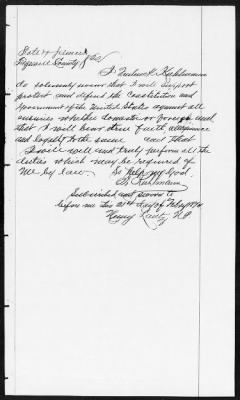 State of Illinois
County } SS
I, Kuhlmann
do solemnly swear that I will support
protect and defend the Constitution and
Government of the United States against all
enemies whether domestic or foreign and
that I will bear true faith allegiance
and loyalty to the same and that
I will well and truly perform all the
duties which may be required of
me by law. So help my God.
Kuhlmann
Subscribed and sworn to
before me this 21st day of
Henry N.P.